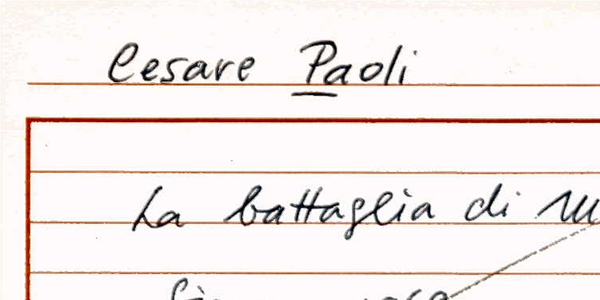 Cesare Paoli
La battaglia di